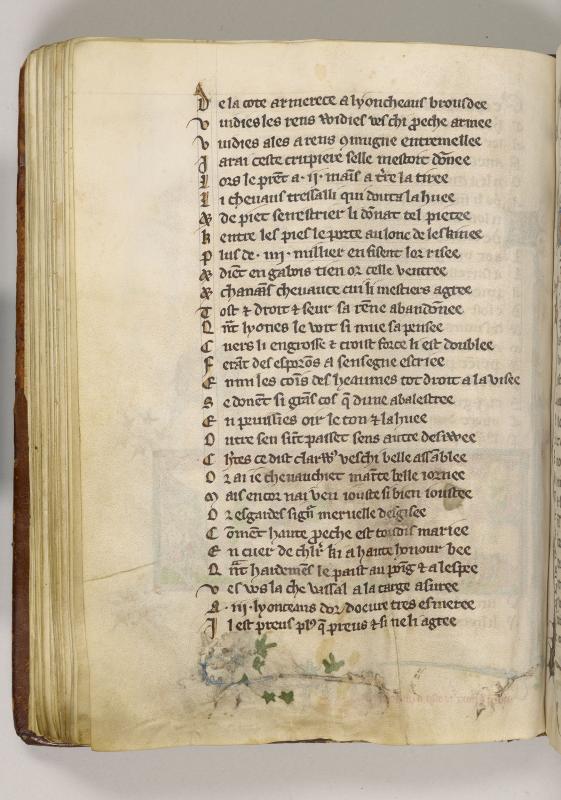 De la cote armerece a lyoncheaus brousdee
Vuidies les rens widies ves chi pche armee
Vuidies ales a rens 9mugne entremellee
Jarai ceste crupiere selle mestoit dōnee
Lors le prēt a·ii·maīs a tre la tiree
Li chevaus tressalli qui douta la huee
& de piet senestrier li dōnat tel pietee
k entre les pies le porte au lonc de leskinee
Plus de·iiii·millier en fisent lor risee
& diēt en gabois tien or celle ventree
& chanāīs chevauce cui li mestiers agree
Tost & droit & seur sa rēne abandōnee
Qnt lyones le voit si mue sa pensee
Cuers li engrosse & croist force li est doublee
Ferāt des esporōs a sensegne escriee
Enmi les coīs des heaumes tot droit a la visee
Se donēt si grās cos q̄ dune abalestree
En peuissies oir le ton & la huee
Outre sen sūt passet sens autre deswee
Chrtes ce dist clarw9 veschi belle assāblee
Or ai ie chevauchiet maīte belle iornee
Mais encor nai veu iouste si bien ioustee
Or esgardes signr mervelle desgisee
Cōment haute peche est tousdis mariee
En cuer de chlr ki a haute honour bee
Qnt hardemēs le paist au poīg & a lespee
Ves wos la che vassal a la targe asuree
A·iii·lyonceaus dor doeuvre tres esmeree
Il est preus pl9 q̄ preus & si ne li agree